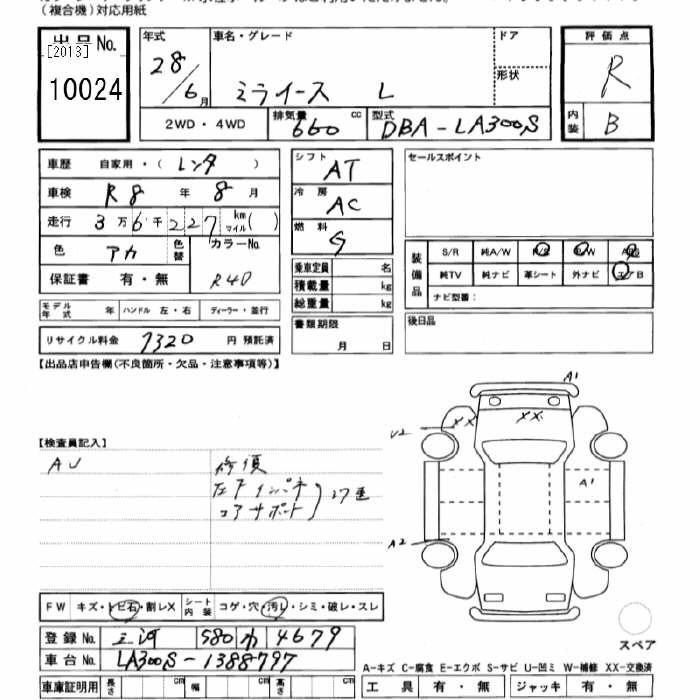 （複合機）対応用紙
出品No.
[2013]
10024
年式
28/6月
車名・グレード
ミライース L
ドア
形状
評価点
R
内装
B
2WD・4WD
排気量
660 cc
型式
DBA-LA300S
車歴 自家用・（ レンタ ）
車検 R8 年 8 月
走行 3万6千227 km マイル( )
色 アカ
色替
カラーNo.
R40
保証書 有・無
シフト AT
冷房 AC
燃料 G
乗車定員 名
積載量 kg
総重量 kg
セールスポイント
装備品
S/R 純A/W P/S P/W ABS
純TV 純ナビ 革シート 外ナビ エアB
ナビ型番：
モデル年式 年 ハンドル 左・右 ディーラー・並行
リサイクル料金 7320 円 預託済
書類期限
月 日
後日品
【出品店申告欄（不良箇所・欠品・注意事項等）】
A1
XX XX
U2
A1
A2
【検査員記入】
AU
修復
左フインパネ
コアサポート
27歪
FW キズ・トビ石・割レX
シート内装 コゲ・穴・汚レ・シミ・破レ・スレ
登録No. 三河 580 わ 4679
車台No. LA300S-1388797
車庫証明用 長さ cm 幅 cm 高さ cm
スペア
A-キズ C-腐食 E-エクボ S-サビ U-凹ミ W-補修 XX-交換済
工具 有・無 ジャッキ 有・無